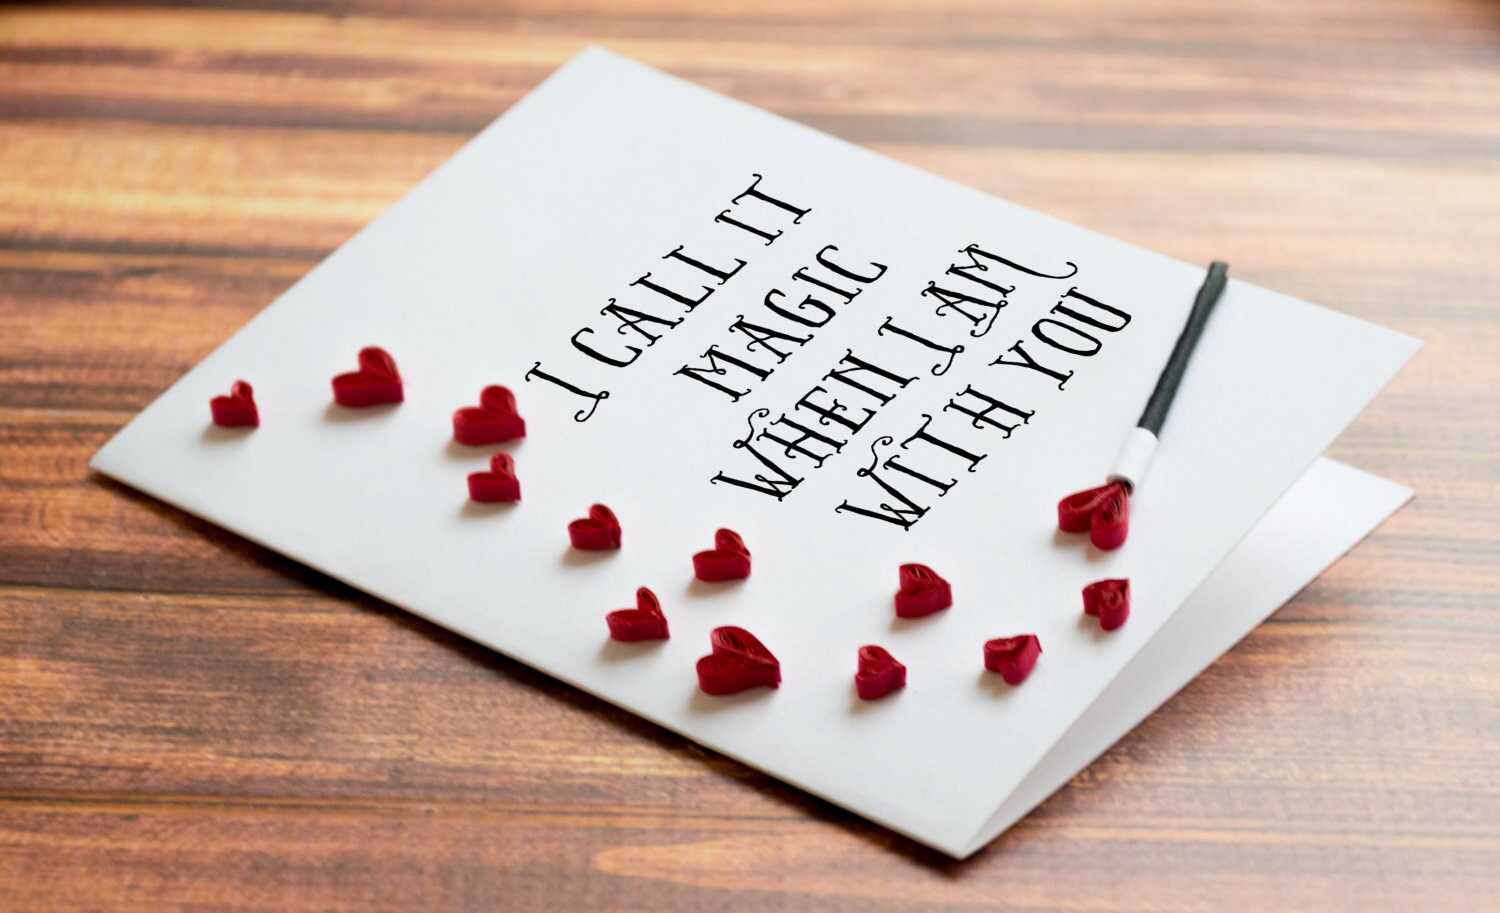 I CALL IT
MAGIC
WHEN I AM
WITH YOU